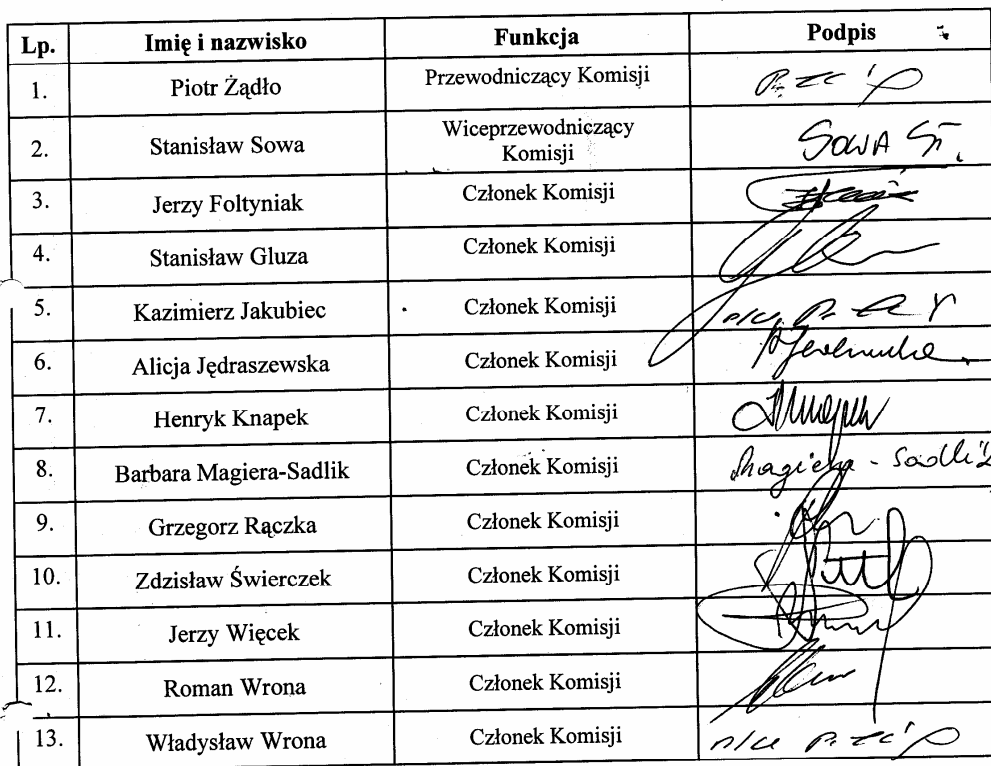 Lp. Imię i nazwisko Funkcja Podpis
1. Piotr Żądło Przewodniczący Komisji
2. Stanisław Sowa Wiceprzewodniczący Komisji SOWA ST.
3. Jerzy Foltyniak Członek Komisji
4. Stanisław Gluza Członek Komisji
5. Kazimierz Jakubiec Członek Komisji
6. Alicja Jędraszewska Członek Komisji
7. Henryk Knapek Członek Komisji
8. Barbara Magiera-Sadlik Członek Komisji Magiera - Sadlik
9. Grzegorz Rączka Członek Komisji
10. Zdzisław Świerczek Członek Komisji
11. Jerzy Więcek Członek Komisji
12. Roman Wrona Członek Komisji
13. Władysław Wrona Członek Komisji